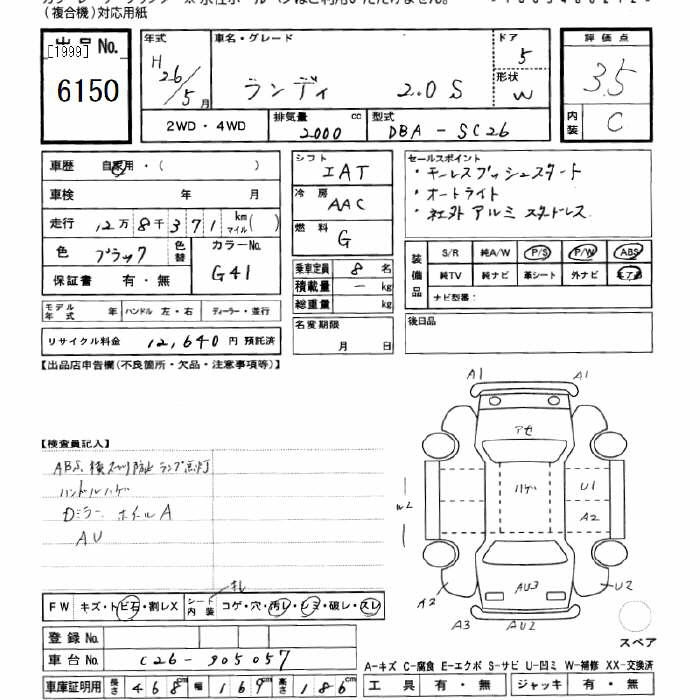 (複合機)対応用紙
出品No.
[1999]
6150
年式
H26/5月
車名・グレード
ランディ 2.0S
ドア
5
形状
W
評価点
3.5
内装
C
2WD・4WD
排気量
2000
cc
型式
DBA-SC26
車歴
自家用・( )
車検 年 月
走行 12万8千371 km マイル( )
色 ブラック
色替
カラーNo.
G41
保証書 有・無
シフト
IAT
冷房
AAC
燃料
G
乗車定員 8 名
積載量 - kg
総重量 kg
名変期限
月 日
セールスポイント
・キーレスプッシュスタート
・オートライト
・社外アルミスタッドレス
装備品
S/R 純A/W P/S P/W ABS
純TV 純ナビ 革シート 外ナビ エアB
ナビ型番:
後日品
モデル年式 年
ハンドル 左・右
ディーラー・並行
リサイクル料金 12,640 円 預託済
【出品店申告欄(不良箇所・欠品・注意事項等)】
【検査員記入】
ABS、横スベリ防止ランプ点灯
ハンドルハゲ
Dミラー ホイルA
AU
FW キズ・トビ石・割レX
シート内装 コゲ・穴・汚レ・シミ・破レ・スレ
登録No.
車台No. C26-905057
車庫証明用 長さ 468cm 幅 169cm 高さ 186cm
A1
A1
アセ
ハゲ
U1
A2
W2
AU3
A2
U2
A3
AU2
スペア
A-キズ C-腐食 E-エクボ S-サビ U-凹ミ W-補修 XX-交換済
工具 有・無
ジャッキ 有・無